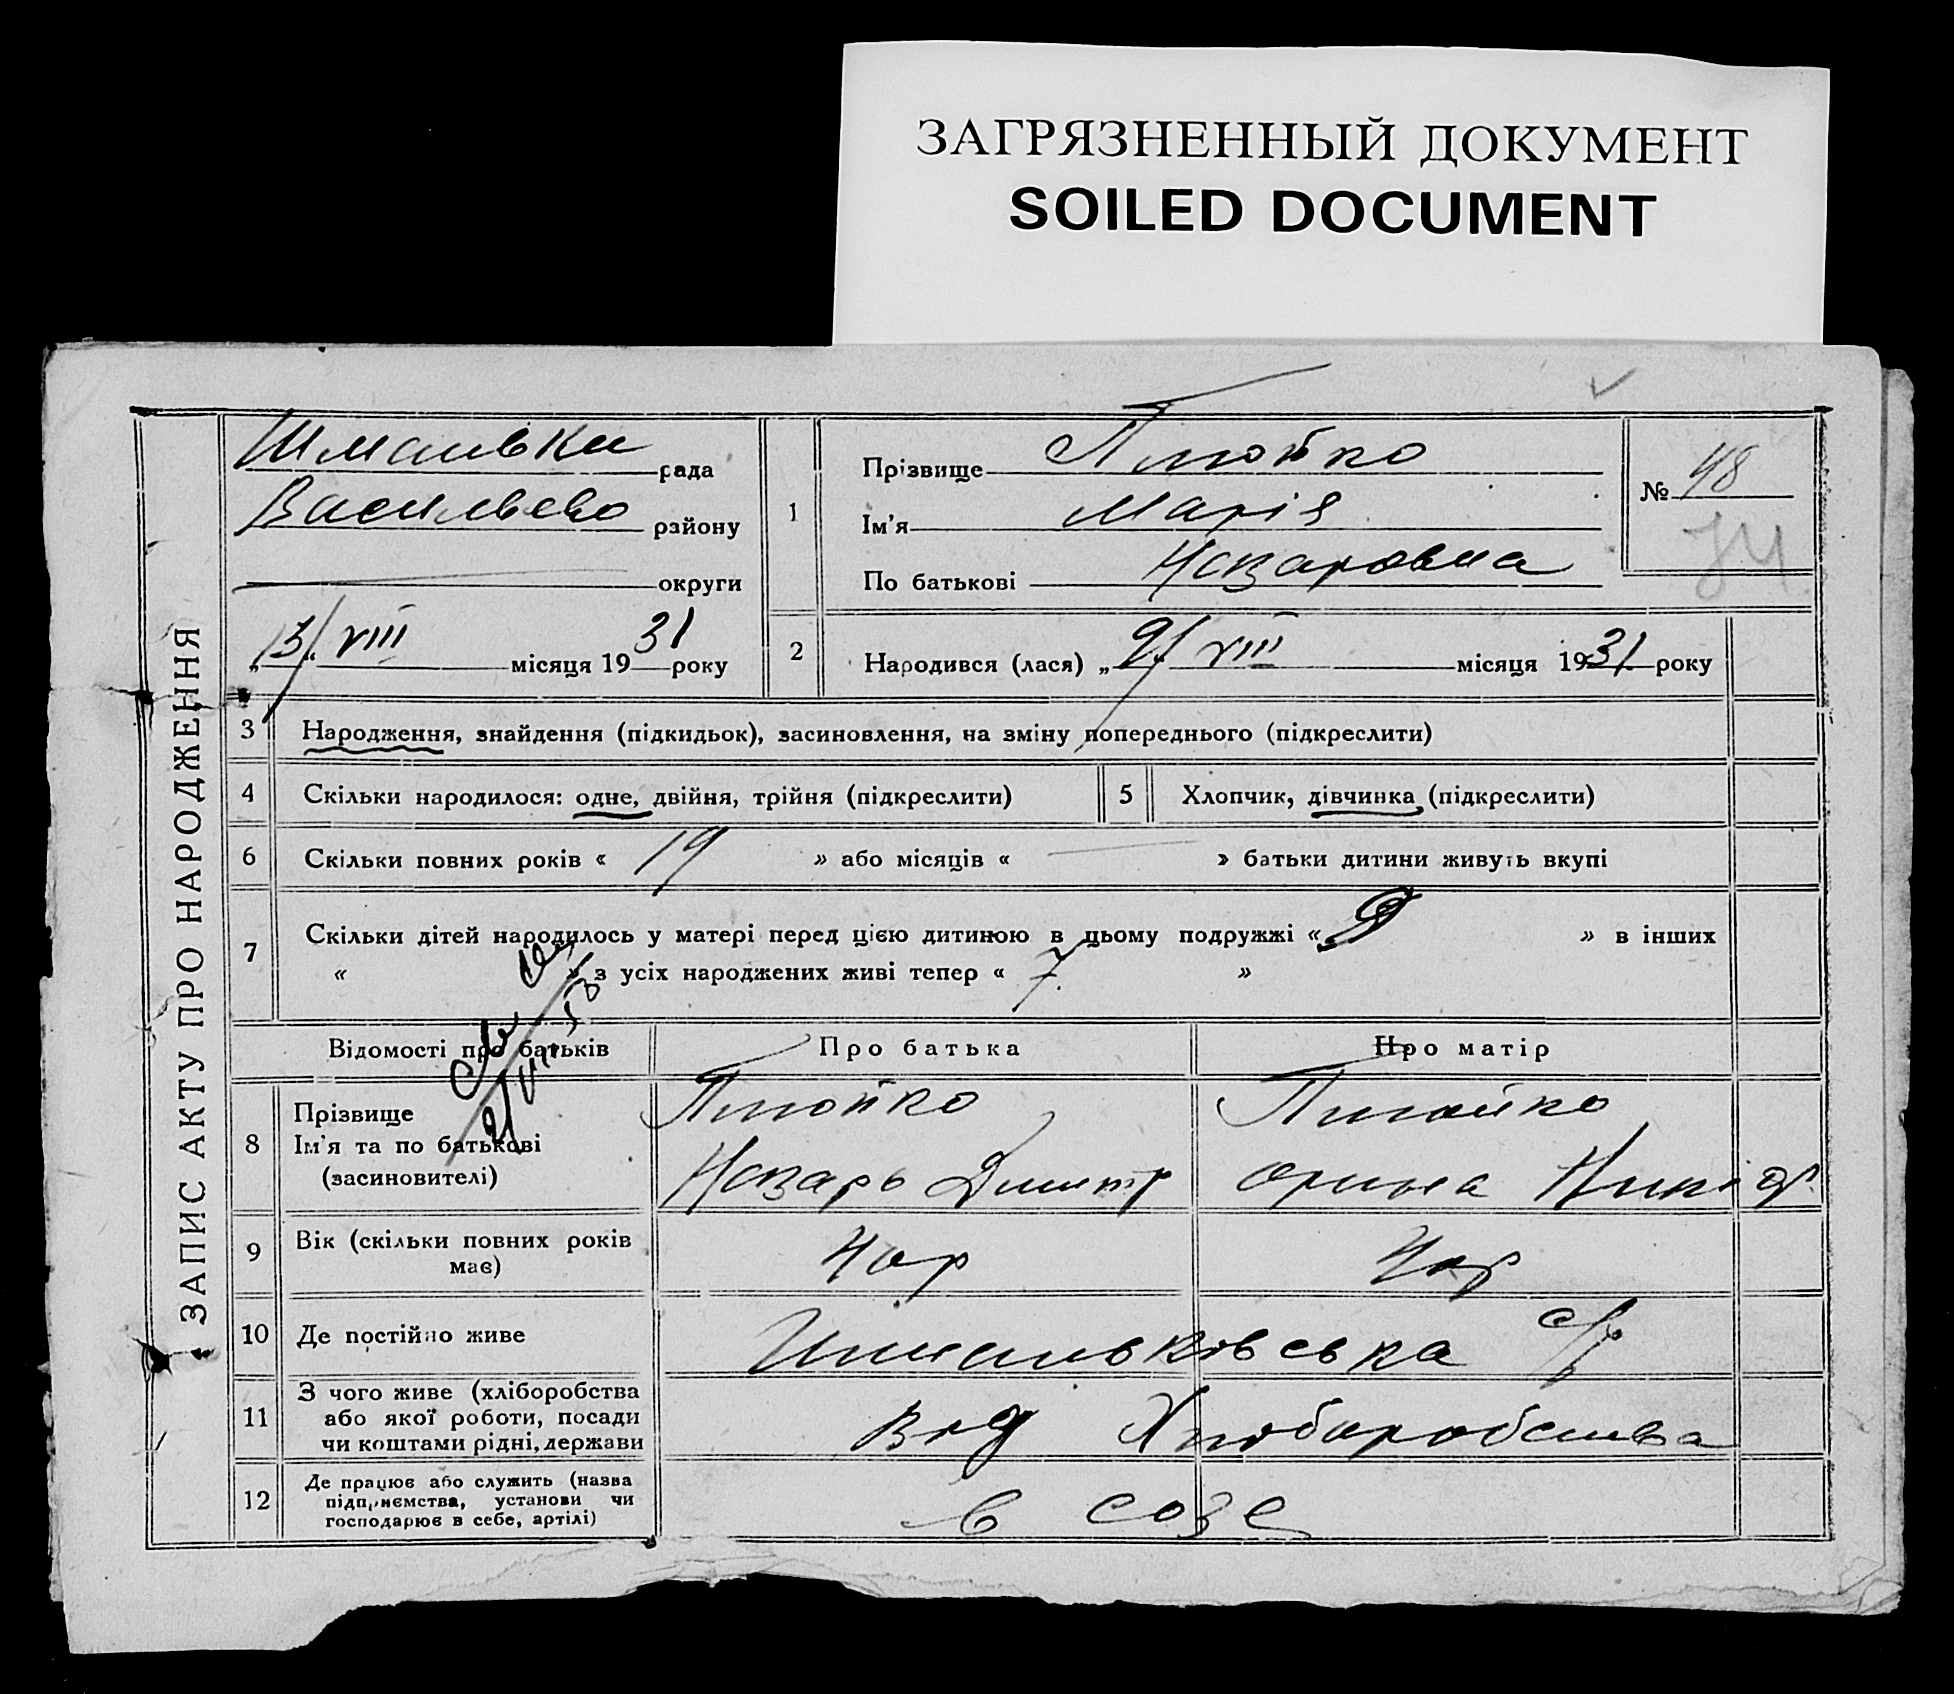 ЗАГРЯЗНЕННЫЙ ДОКУМЕНТ
SOILED DOCUMENT
ЗАПИС АКТУ ПРО НАРОДЖЕННЯ
рада
району
округи
„13“ VIII місяця 1931 року
1
Прізвище
Ім'я Марія
По батькові Назаровна
№ 48
74
2 Народився (лася) „9“ VIII місяця 1931 року
3 Народження, знайдення (підкидьок), засиновлення, на зміну попереднього (підкреслити)
4 Скільки народилося: одне, двійня, трійня (підкреслити)
5 Хлопчик, дівчинка (підкреслити)
6 Скільки повних років « 19 » або місяців « — » батьки дитини живуть вкупі
7 Скільки дітей народилось у матері перед цією дитиною в цьому подружжі « » в інших
« » з усіх народжених живі тепер « 7 »
Відомості про батьків
Про батька
Про матір
8 Прізвище
Ім'я та по батькові
(засиновителі)
Назарь Дмитр
Орина Микід
9 Вік (скільки повних років
має)
10 Де постійно живе
с/р
11 З чого живе (хліборобства
або якої роботи, посади
чи коштами рідні, держави
Від Хлібаробства
12 Де працює або служить (назва
підприємства, установи чи
господарює в себе, артілі)
в созе